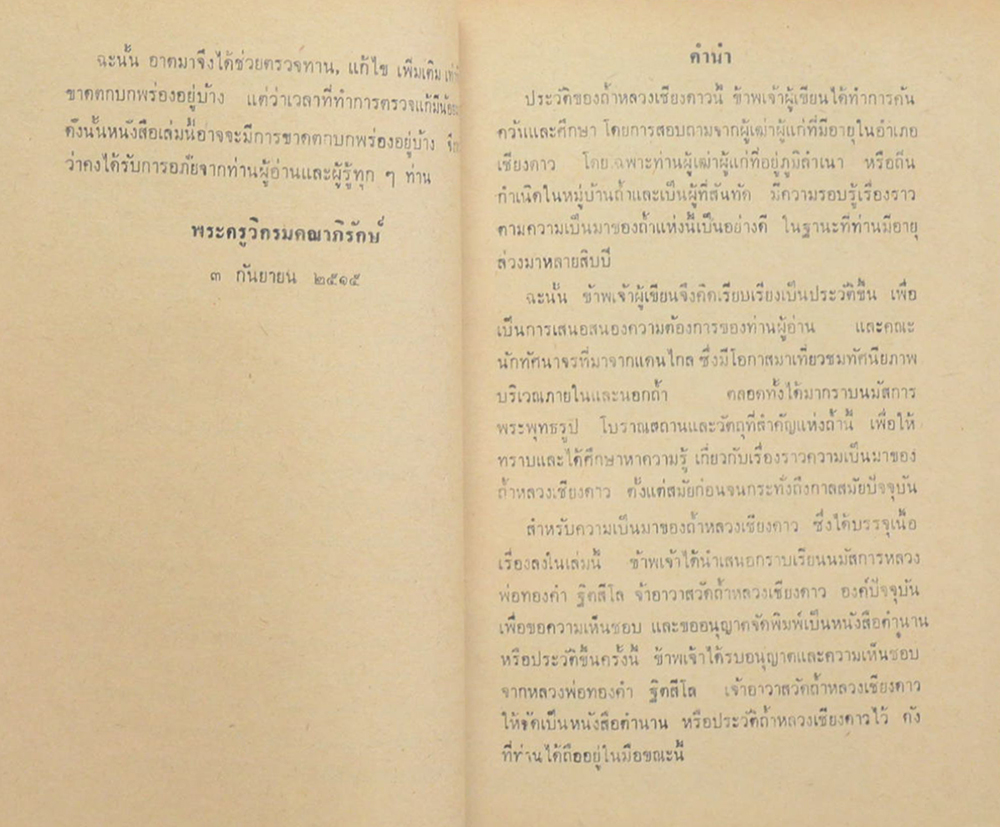 ฉะนั้น อาตมาจึงได้ช่วยตรวจทาน, แก้ไข เพิ่มเติม
ขาดตกบกพร่องอยู่บ้าง แต่ว่าเวลาที่ทำการตรวจแก้มีน้อย
ดังนั้นหนังสือเล่มนี้อาจจะมีการขาดตกบกพร่องอยู่บ้าง
ว่าคงได้รับการอภัยจากท่านผู้อ่านและผู้รู้ทุก ๆ ท่าน
พระครูวิกรมคณาภิรักษ์
๓ กันยายน ๒๕๑๕
คำนำ
ประวัติของถ้ำหลวงเชียงดาวนี้ ข้าพเจ้าผู้เขียนได้ทำการค้น
คว้าและศึกษา โดยการสอบถามจากผู้เฒ่าผู้แก่ที่มีอายุในอำเภอ
เชียงดาว โดยเฉพาะท่านผู้เฒ่าผู้แก่ที่อยู่ภูมิลำเนา หรือถิ่น
กำเนิดในหมู่บ้านถ้ำและเป็นผู้ที่สันทัด มีความรอบรู้เรื่องราว
ตามความเป็นมาของถ้ำแห่งนี้เป็นอย่างดี ในฐานะที่ท่านมีอายุ
ล่วงมาหลายสิบปี
ฉะนั้น ข้าพเจ้าผู้เขียนจึงคิดเรียบเรียงเป็นประวัติขึ้น เพื่อ
เป็นการเสนอสนองความต้องการของท่านผู้อ่าน และคณะ
นักทัศนาจรที่มาจากแดนไกล ซึ่งมีโอกาสมาเที่ยวชมทัศนียภาพ
บริเวณภายในและนอกถ้ำ ตลอดทั้งได้มากราบนมัสการ
พระพุทธรูป โบราณสถานและวัตถุที่สำคัญแห่งถ้ำนี้ เพื่อให้
ทราบและได้ศึกษาหาความรู้ เกี่ยวกับเรื่องราวความเป็นมาของ
ถ้ำหลวงเชียงดาว ตั้งแต่สมัยก่อนจนกระทั่งถึงกาลสมัยปัจจุบัน
สำหรับความเป็นมาของถ้ำหลวงเชียงดาว ซึ่งได้บรรจุเนื้อ
เรื่องลงในเล่มนี้ ข้าพเจ้าได้นำเสนอกราบเรียนนมัสการหลวง
พ่อทองคำ ฐิตสีโล จ้าอาวาสวัดถ้ำหลวงเชียงดาว องค์ปัจจุบัน
เพื่อขอความเห็นชอบ และขออนุญาตจัดพิมพ์เป็นหนังสือตำนาน
หรือประวัติขึ้นครั้งนี้ ข้าพเจ้าได้รบอนุญาตและความเห็นชอบ
จากหลวงพ่อทองคำ ฐิตสีโล เจ้าอาวาสวัดถ้ำหลวงเชียงดาว
ให้จัดเป็นหนังสือตำนาน หรือประวัติถ้ำหลวงเชียงดาวไว้ ดัง
ที่ท่านได้ถืออยู่ในมือขณะนี้